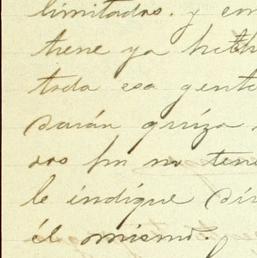 limitados. y em
tiene ya hech
toda esa gent
darán quiza
dos por no tene
le indique si
él mismo.